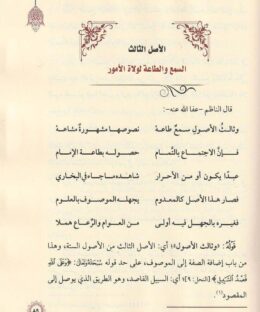 الأصل الثالث
السمع والطاعة لولاة الأمور
قال الناظم -عفا الله عنه-:
وثالث الأصول سمع طاعة نصوصها مشهورة مشاعة
فإن الاجتماع بالتمام حصوله بطاعة الإمام
عبدًا يكون أو من الأحرار شاهده ما جاء في البخاري
فصار هذا الأصل كالمعدوم يجهله الموصوف بالعلوم
فغيره بالجهل فيه أولى من العوام والرعاع هملا
قوله: «وثالث الأصول»؛ أي: الأصل الثالث من الأصول الستة، وهذا
من باب إضافة الصفة إلى الموصوف، على حد قوله سبحانه وتعالى: ﴿وعلى الله
قصد السبيل﴾ [النحل: ٩]؛ أي: السبيل القاصد، وهو الطريق الذي يوصل إلى
المقصود(١).